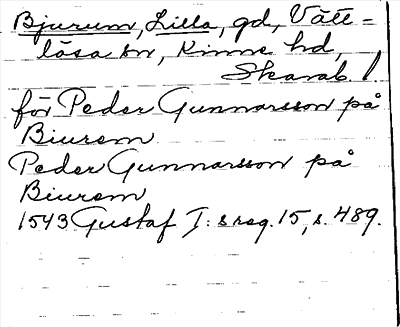 Bjurum, Lilla, gd, Vätt-
lösa sn, Kinne hd,
Skarab. l
för Peder Gunnarsson på
Biurem
Peder Gunnarsson på
Biurem
1543 Gustaf I:s reg. 15, s. 489.